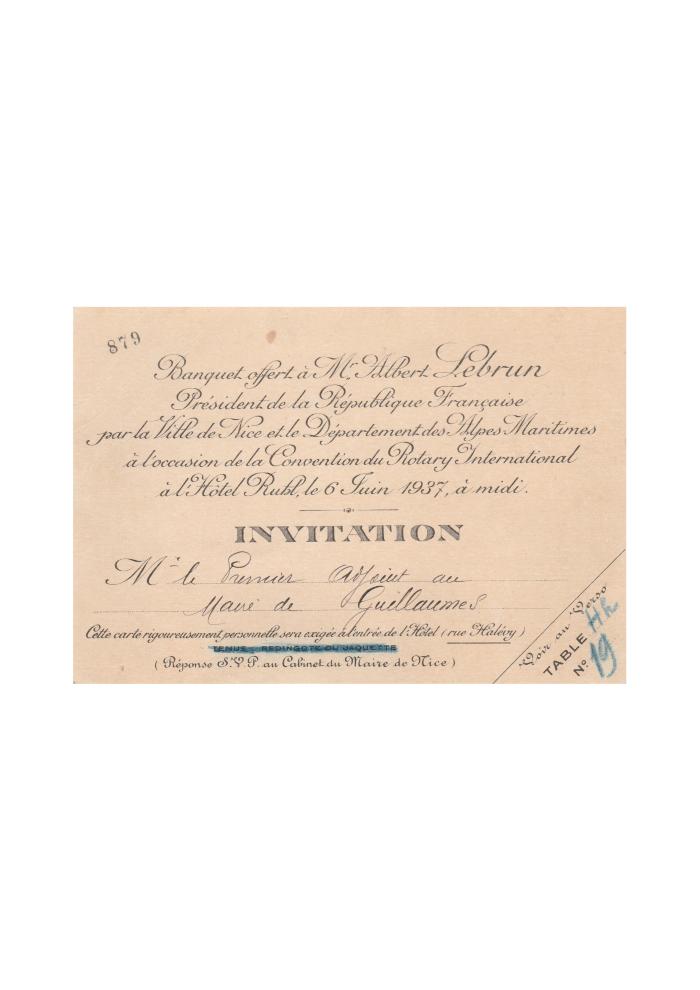 879
Banquet offert à Mr Albert Lebrun
Président de la République Française
par la Ville de Nice et le Département des Alpes Maritimes
à l'occasion de la Convention du Rotary International
à l'Hôtel Ruhl, le 6 Juin 1937, à midi.
INVITATION
Mr le Premier Adjoint au
Maire de Guillaumes
Cette carte rigoureusement personnelle sera exigée à l'entrée de l'Hôtel (rue Halévy)
TENUE : REDINGOTE OU JAQUETTE
(Réponse S.V.P. au Cabinet du Maire de Nice)
Voir au Verso
TABLE Hh
No 19